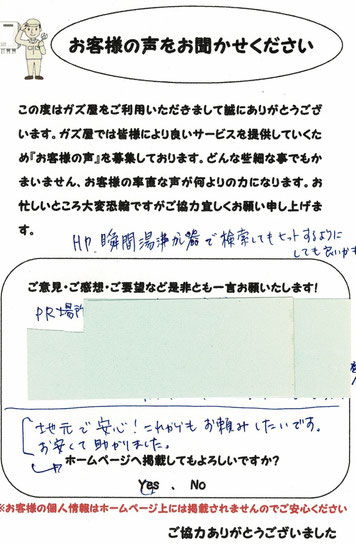 お客様の声をお聞かせください
この度はガズ屋をご利用いただきまして誠にありがとうござ
います。ガズ屋では皆様により良いサービスを提供していくた
め『お客様の声』を募集しております。どんな些細な事でもか
まいません、お客様の率直な声が何よりの力になります。お
忙しいところ大変恐縮ですがご協力宜しくお願い申し上げま
す。
HP. 瞬間湯沸かし器で検索してもヒットするように
しても良いかも
ご意見・ご感想・ご要望など是非とも一言お願いいたします!
PR場所
地元で安心!これからもお頼みしたいです。
お安くて助かりました。
ホームページへ掲載してもよろしいですか?
Yes 、 No
※お客様の個人情報はホームページ上には掲載されませんのでご安心ください
ご協力ありがとうございました